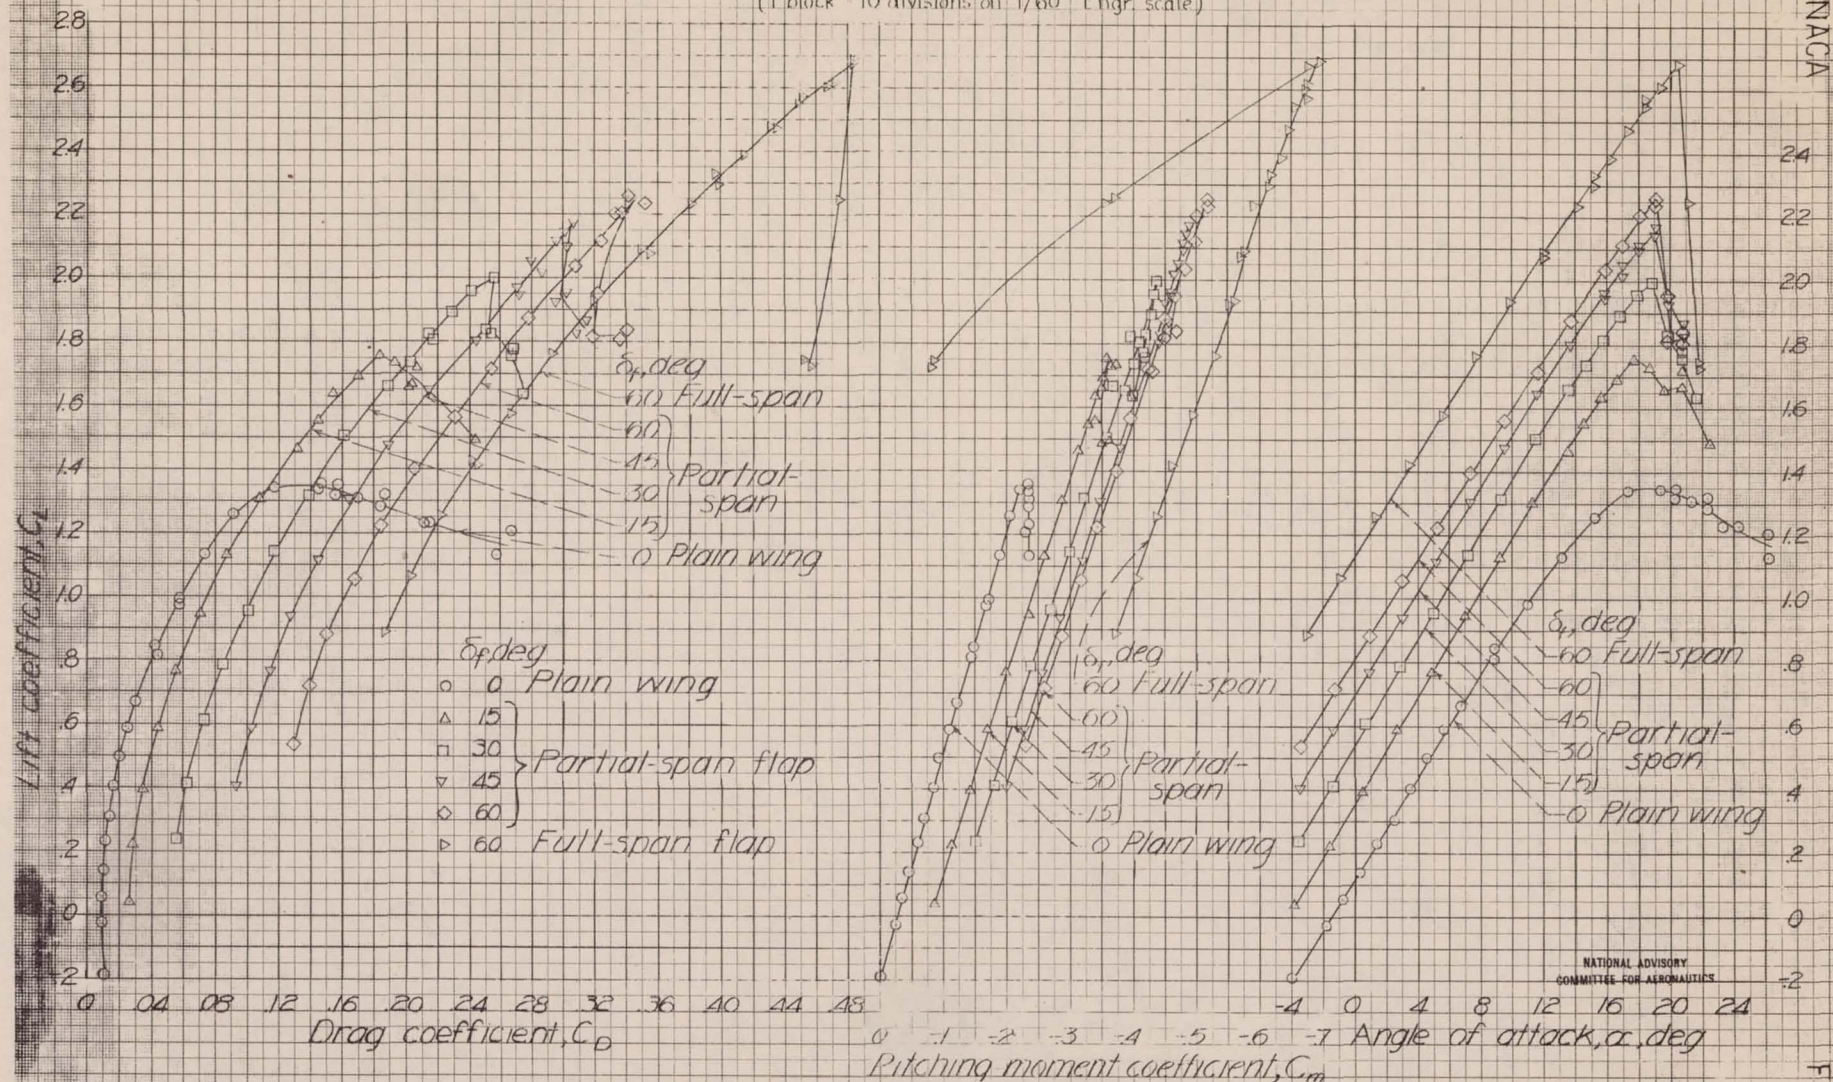 (1 block 10 divisions on 1/60 Engr. scale)
NACA
2.8
2.6
2.4
2.2
2.0
1.8
1.6
1.4
1.2
1.0
.8
.6
.4
.2
0
-.2
Lift coefficient, CL
δf, deg
60 Full-span
60
45
30
15
Partial-
span
0 Plain wing
δf, deg
0 Plain wing
15
30
45
60
Partial-span flap
60 Full-span flap
0 .04 .08 .12 .16 .20 .24 .28 .32 .36 .40 .44 .48
Drag coefficient, CD
δf, deg
60 Full-span
60
45
30
15
Partial-
span
0 Plain wing
0 -.1 -.2 -.3 -.4 -.5 -.6 -.7
Pitching moment coefficient, Cm
δf, deg
60 Full-span
60
45
30
15
Partial-
span
0 Plain wing
-4 0 4 8 12 16 20 24
Angle of attack, α, deg
2.4
2.2
2.0
1.8
1.6
1.4
1.2
1.0
.8
.6
.4
.2
0
-.2
NATIONAL ADVISORY
COMMITTEE FOR AERONAUTICS